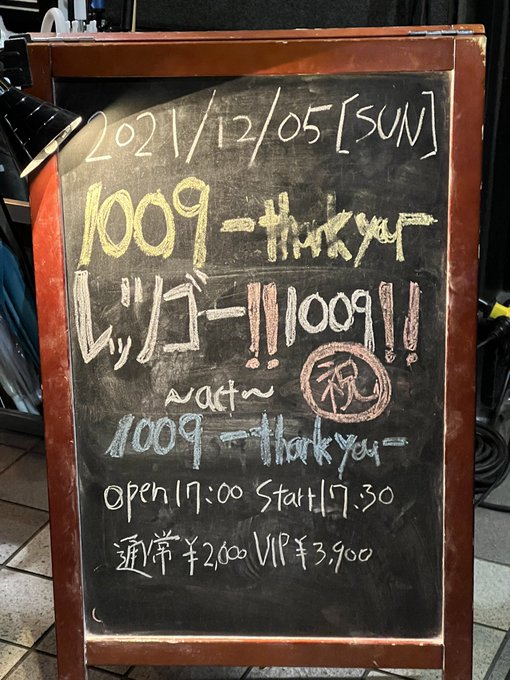 2021/12/05[SUN]
1009-thank you-
レッツゴー!!1009!!
祝
~act~
1009-thank you-
open17:00 Start17:30
通常¥2,000 VIP¥3,900